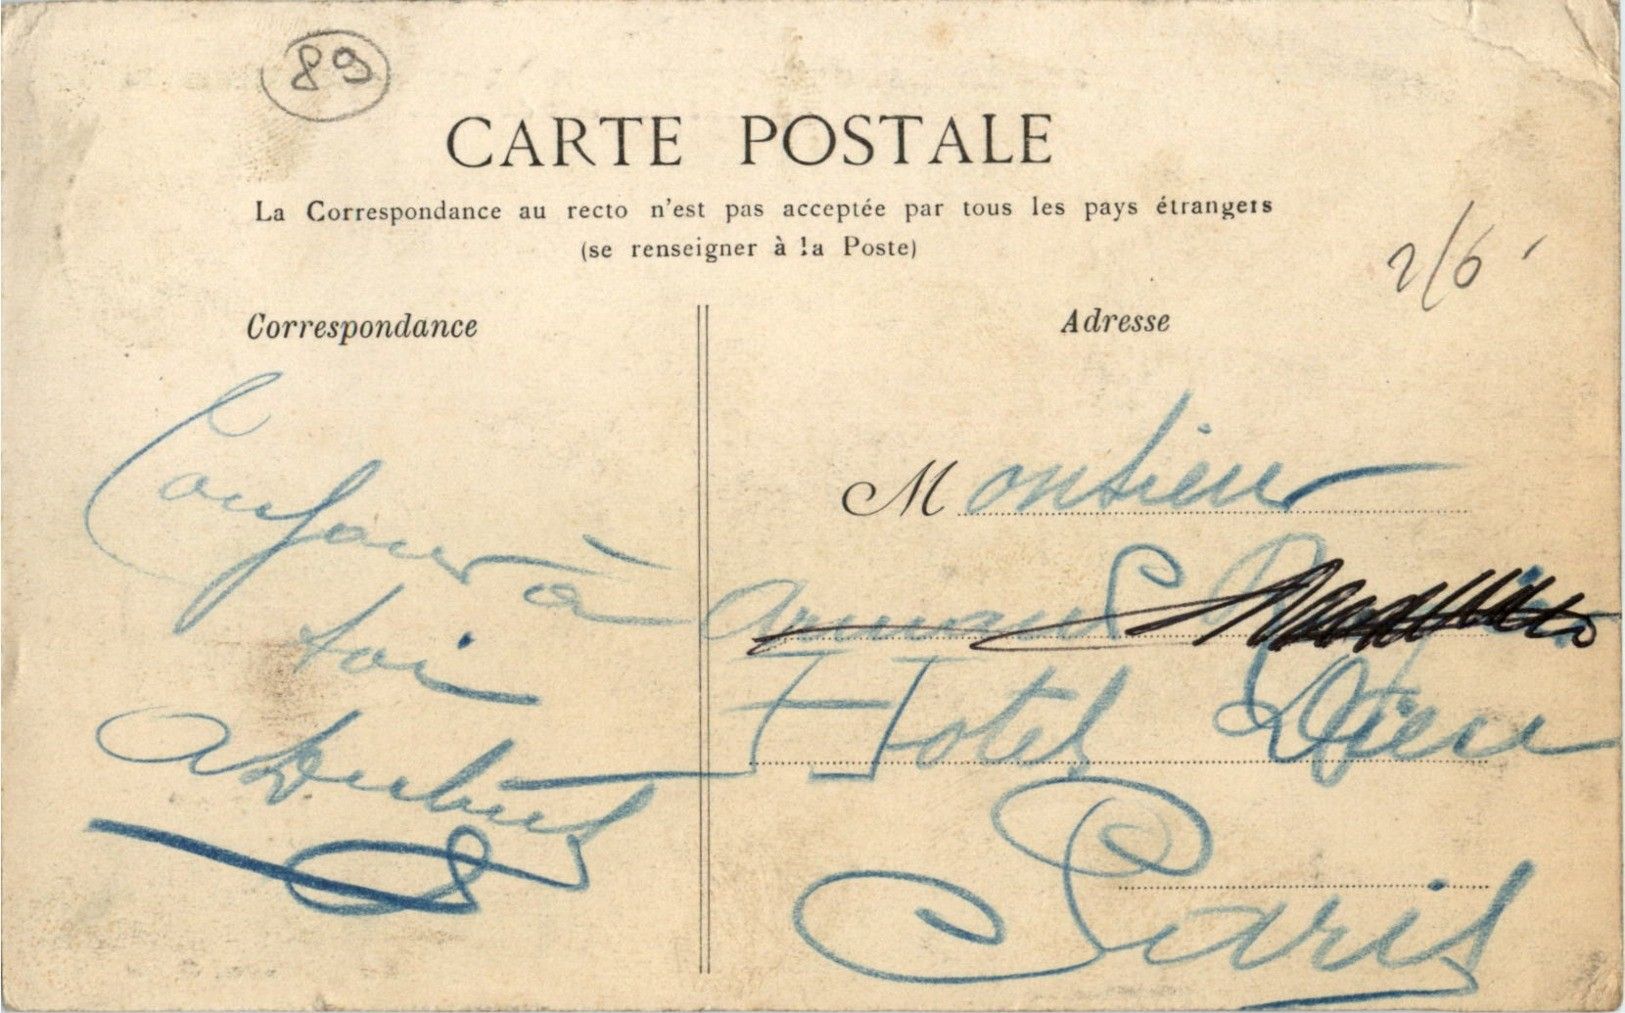 89
CARTE POSTALE
La Correspondance au recto n'est pas acceptée par tous les pays étrangers
(se renseigner à la Poste)
2/6
Correspondance
Adresse
Toujours à
toi
ADubus
Monsieur
Armand
Hotel Dieu
Paris